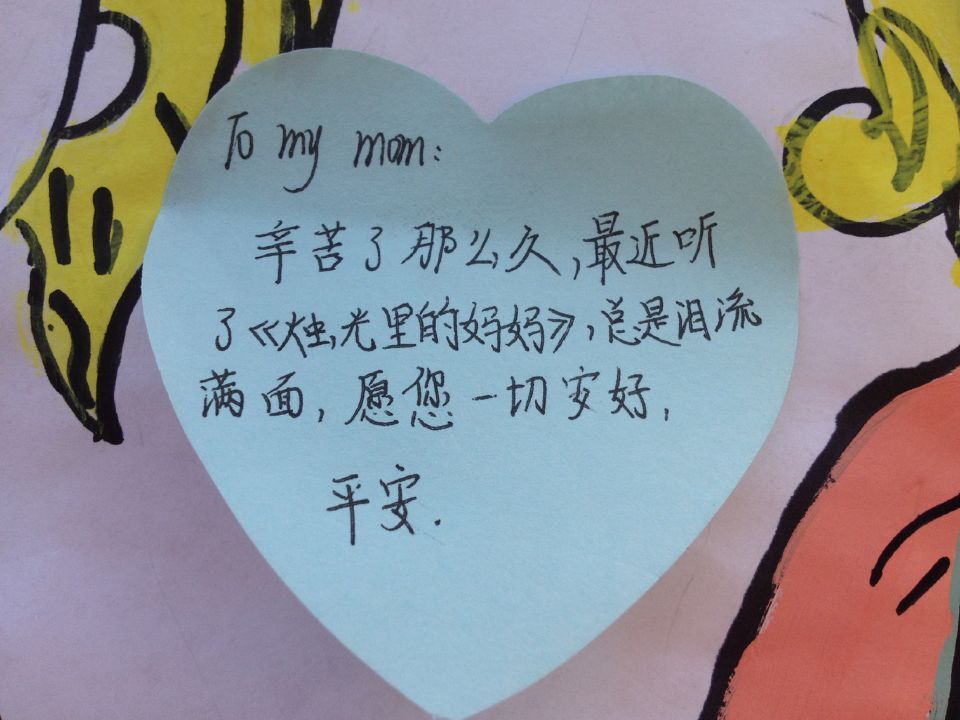 To my mom:
辛苦了那么久,最近听
了《烛光里的妈妈》,总是泪流
满面,愿您一切安好,
平安.